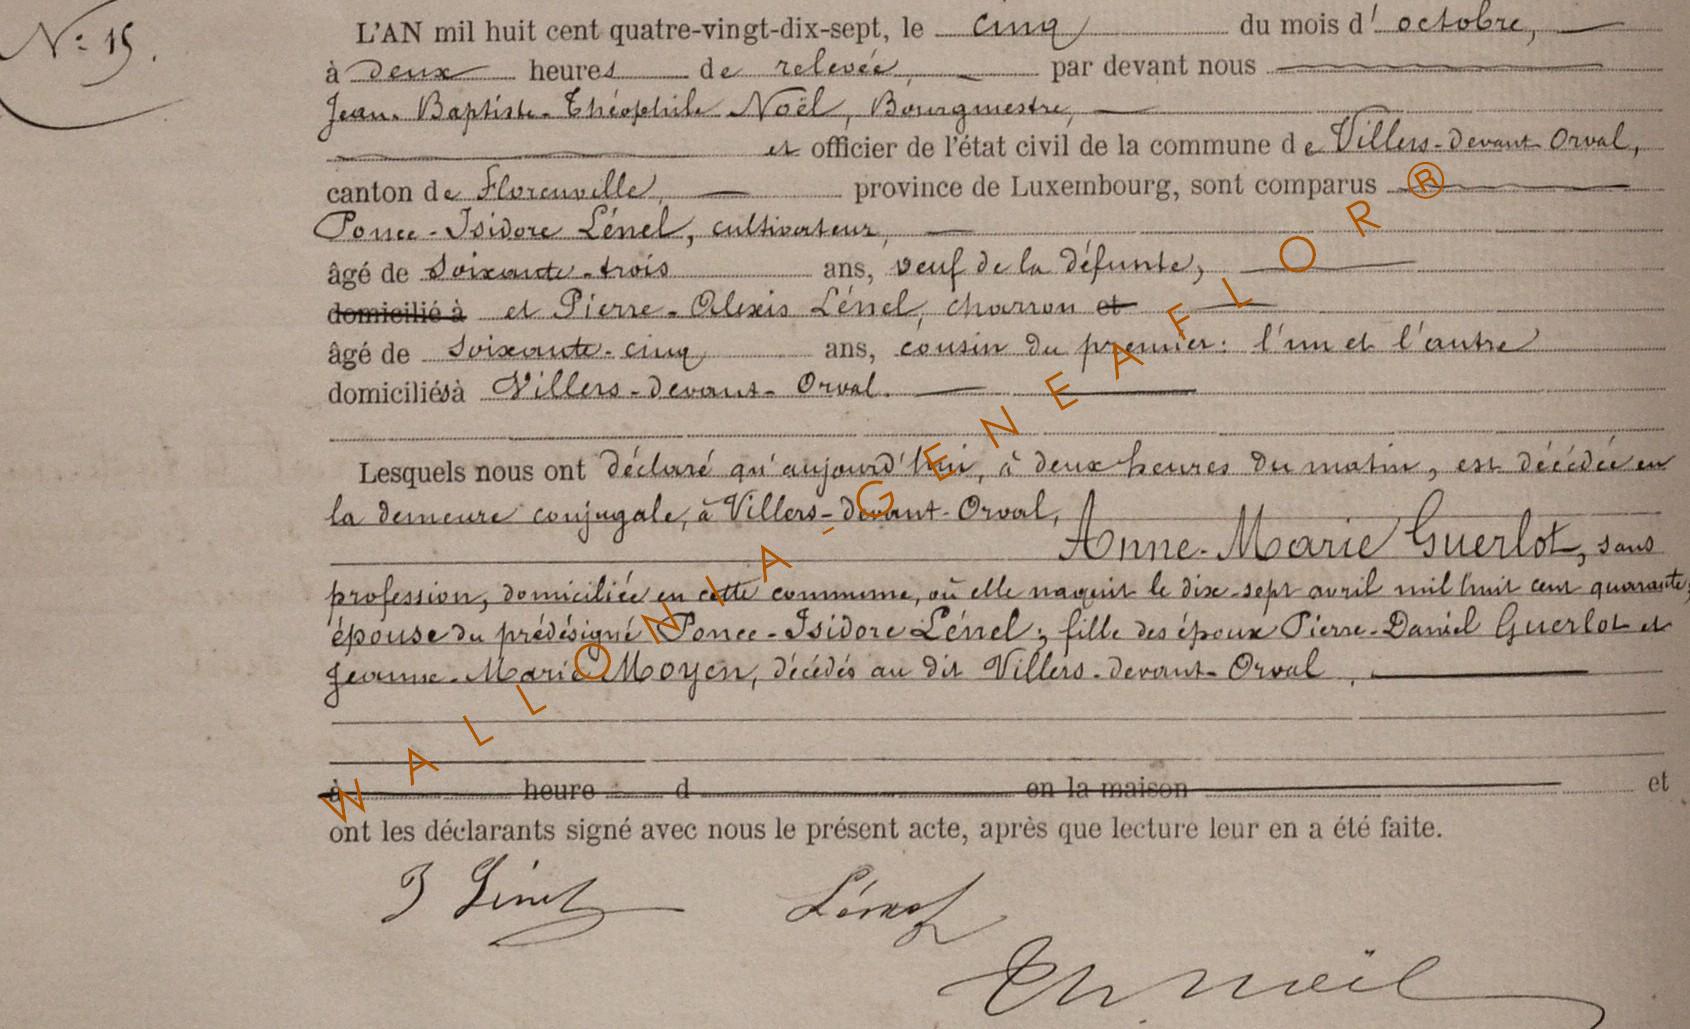 N.º 15.
L'AN mil huit cent quatre-vingt-dix-sept, le cinq du mois d' octobre,
à deux heures de relevée, par devant nous
Jean-Baptiste-Théophile Noël, Bourgmestre,
et officier de l'état civil de la commune de Villers-devant Orval,
canton de Florenville, province de Luxembourg, sont comparus
Ponce-Isidore Lénel, cultivateur,
âgé de soixante-trois ans, veuf de la défunte,
domicilié à et Pierre-Alexis Lénel, charron et
âgé de soixante-cinq ans, cousin du premier: l'un et l'autre
domiciliés à Villers-devant-Orval.
Lesquels nous ont déclaré qu'aujourd'hui, à deux heures du matin, est décédée en
la demeure conjugale, à Villers-devant-Orval,
Anne-Marie Guerlot, sans
profession, domiciliée en cette commune, où elle naquit le dix-sept avril mil huit cent quarante,
épouse du prédésigné Ponce-Isidore Lénel; fille des époux Pierre-Daniel Guerlot et
Jeanne-Marie Moyen, décédés au dit Villers-devant-Orval.
à heure d en la maison et
ont les déclarants signé avec nous le présent acte, après que lecture leur en a été faite.
Lénel Lénel
Th Noël
WALLONIA-GENEAFLOR®